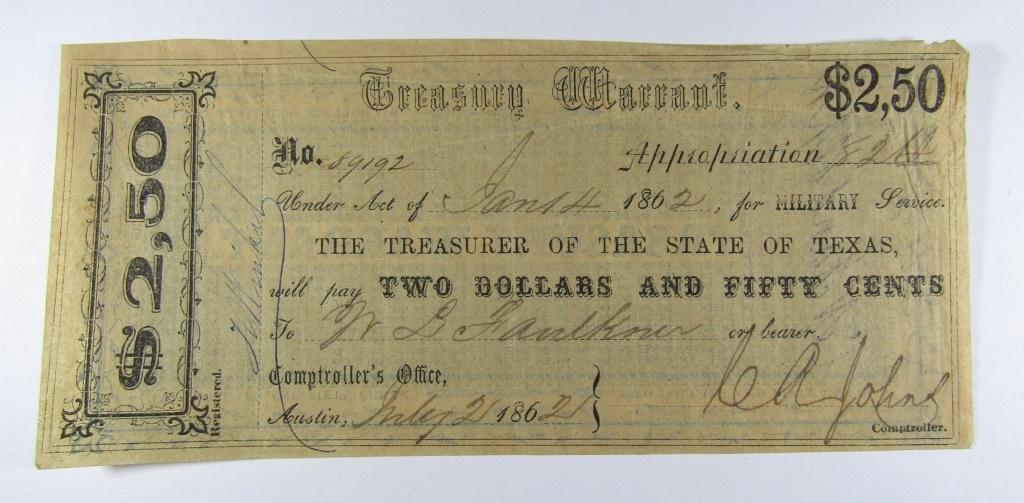 Treasury Warrant.
$2,50
$2,50
No. 89192 Appropriation
Under Act of Jan 14 1862, for MILITARY Service.
THE TREASURER OF THE STATE OF TEXAS,
will pay TWO DOLLARS AND FIFTY CENTS
To W L Faulkner or bearer.
Comptroller's Office,
Austin, July 21 1862
C R Johns
Comptroller.
Registered.